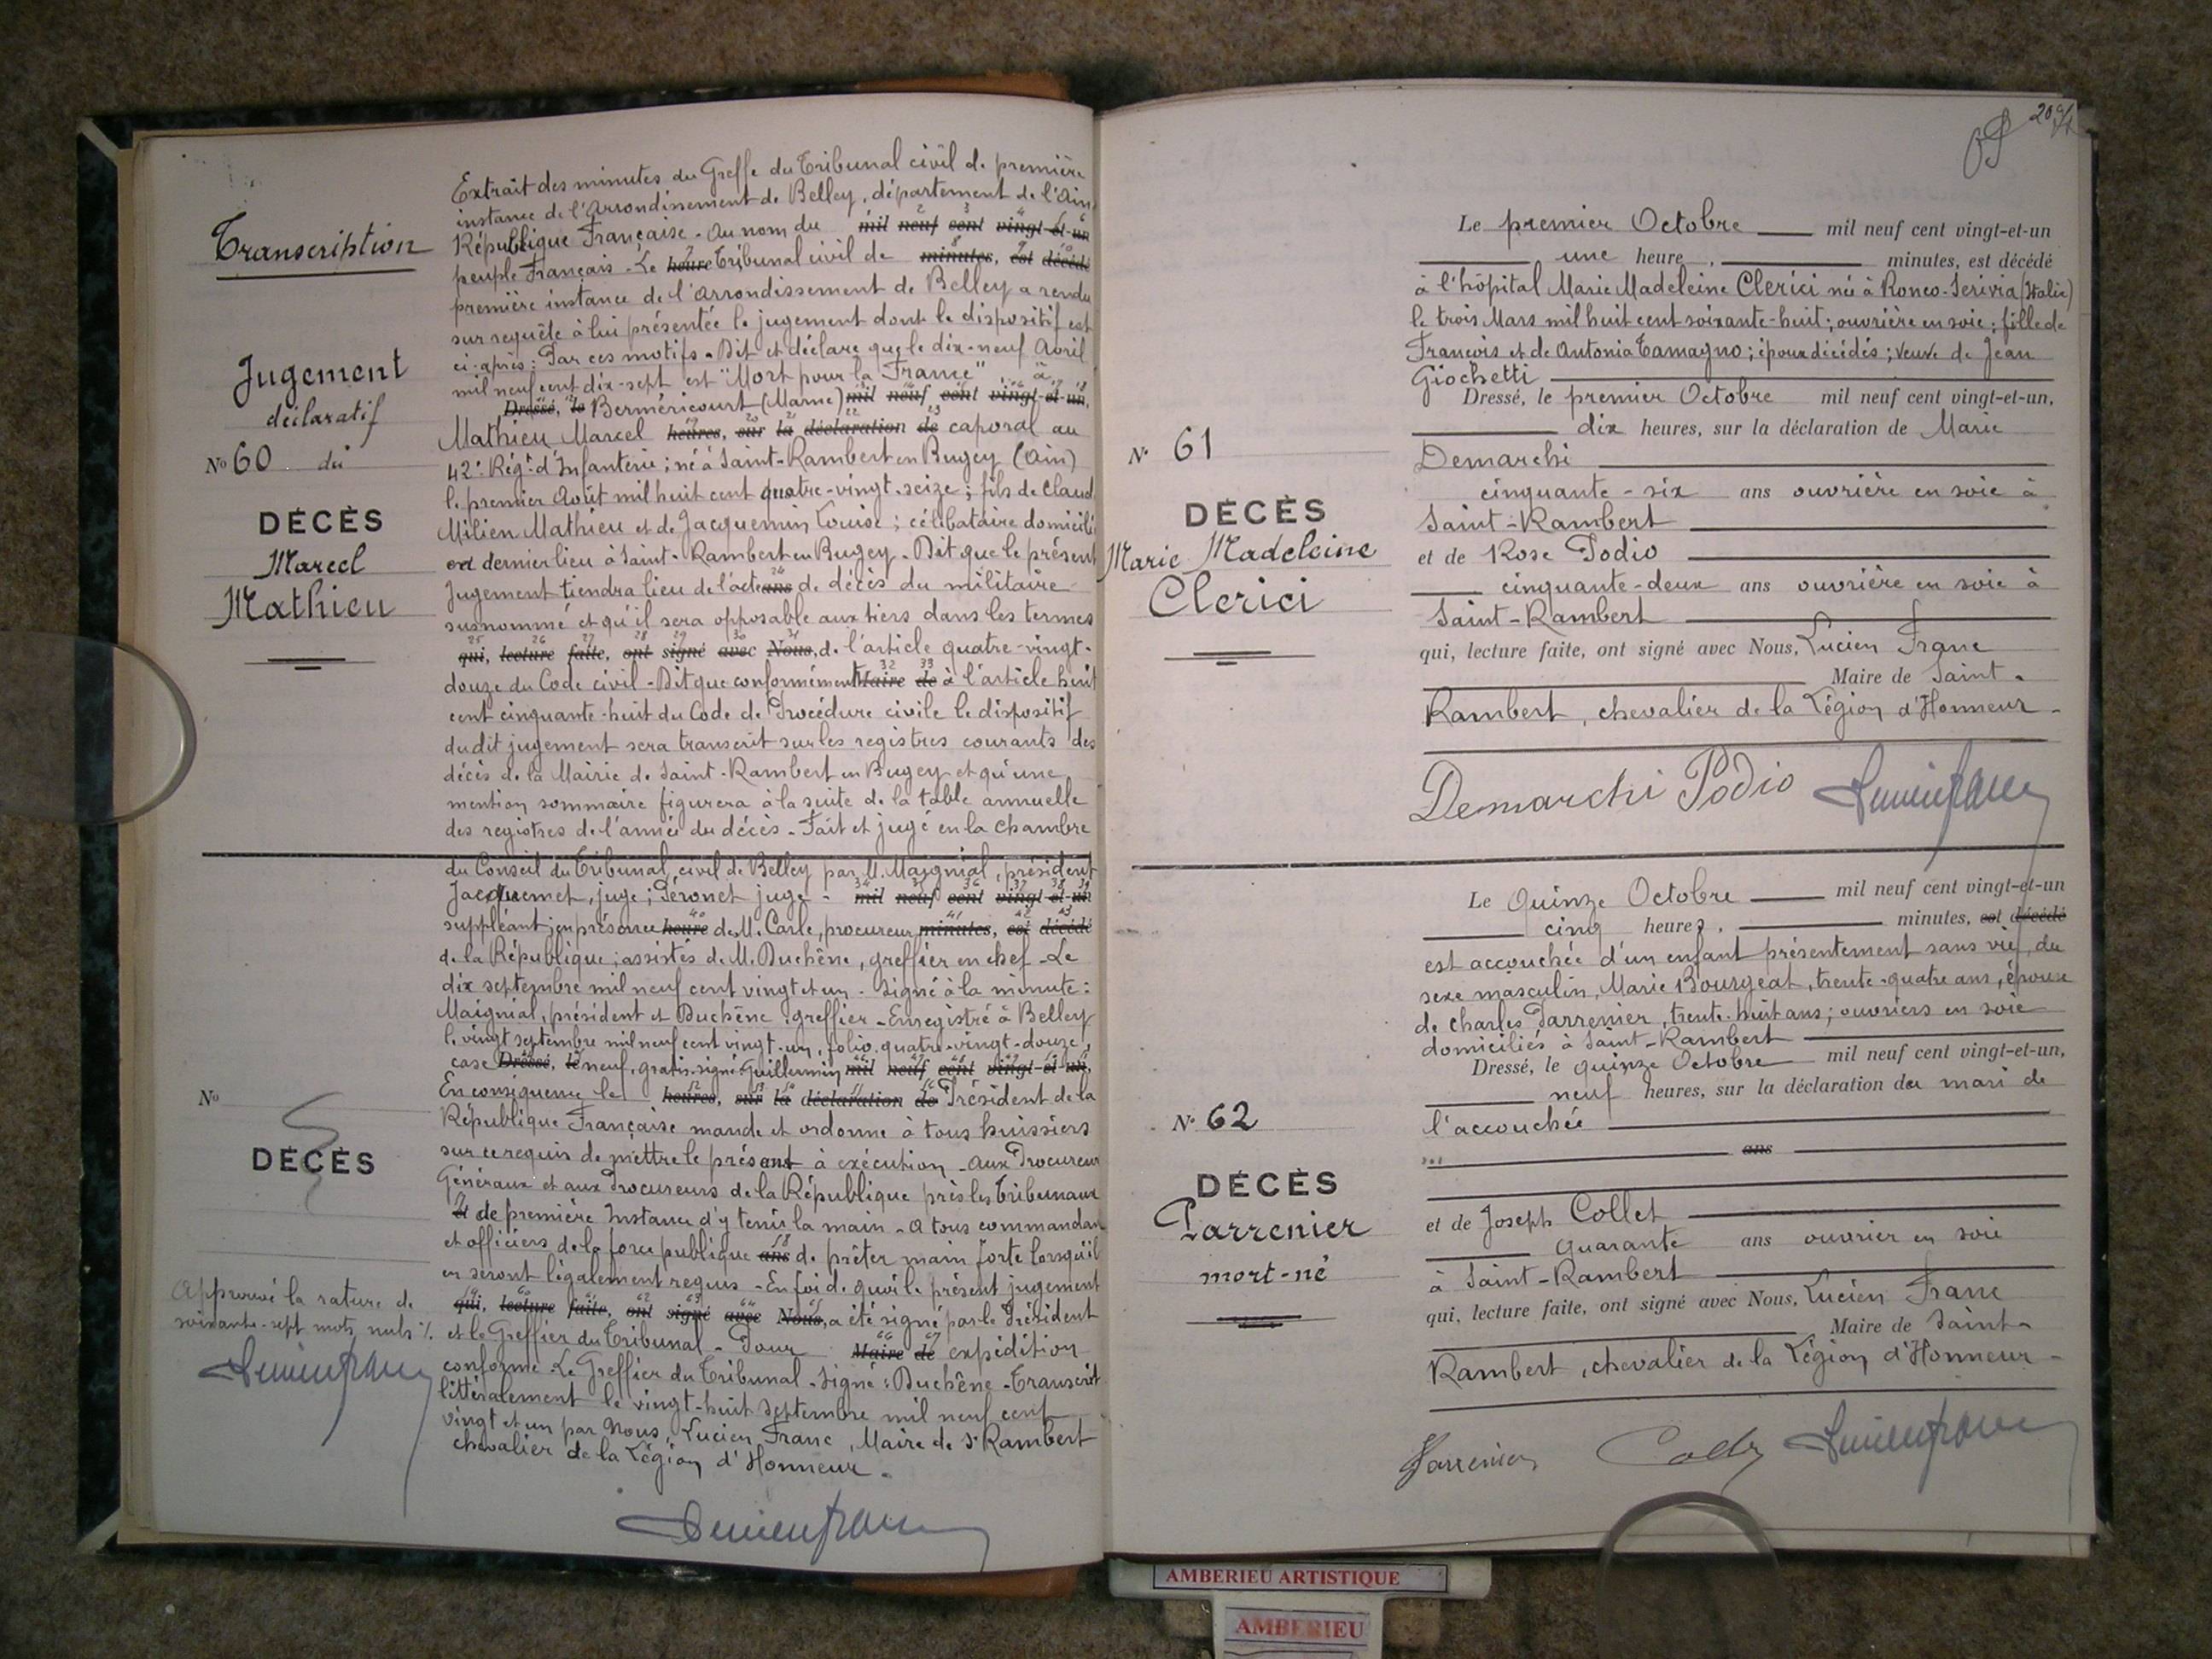 Transcription
Jugement
déclaratif
No 60 du
DÉCÈS
Marcel
Mathieu
Extrait des minutes du Greffe du Tribunal civil de première
instance de l'Arrondissement de Belley, département de l'Ain
République Française - Au nom du mil neuf cent vingt-et-un
peuple Français - Le heure Tribunal civil de minutes, est décédé
première instance de l'arrondissement de Belley a rendu
sur requête à lui présentée le jugement dont le dispositif est
ci-après : Par ces motifs - Dit et déclare que le dix-neuf Avril
mil neuf cent dix-sept est "Mort pour la France" à
Dressé, le Berméricourt (Marne) mil neuf cent vingt-et-un,
Mathieu Marcel heures, sur la déclaration de caporal au
42e Régt d'Infanterie ; né à Saint-Rambert en Bugey (Ain)
le premier Août mil huit cent quatre-vingt-seize ; fils de Claud
Milien Mathieu et de Jacquemin Louise ; célibataire domicilié
en dernier lieu à Saint-Rambert en Bugey - Dit que le présent
Jugement tiendra lieu de l'acte ans de décès du militaire
susnommé et qu'il sera opposable aux tiers dans les termes
qui, lecture faite, ont signé avec Nous, de l'article quatre-vingt-
douze du Code civil - Dit que conformément Maire de à l'article huit
cent cinquante-huit du Code de Procédure civile le dispositif
du dit jugement sera transcrit sur les registres courants des
décès de la Mairie de Saint-Rambert en Bugey et qu'une
mention sommaire figurera à la suite de la table annuelle
des registres de l'année du décès - Fait et jugé en la chambre
du Conseil du Tribunal civil de Belley par M. Maignial, président
Jacquemet, juge ; Péronet juge - mil neuf cent vingt-et-un
suppléant ; en présence heure de M. Carle, procureur minutes, est décédé
de la République ; assistés de M. Duchêne, greffier en chef - Le
dix septembre mil neuf cent vingt et un - Signé à la minute :
Maignial, président et Duchêne greffier - Enregistré à Belley
le vingt septembre mil neuf cent vingt-un, folio quatre-vingt-douze,
case Dressé, le neuf, gratis signé Guillermin mil neuf cent vingt-et-un,
En conséquence le heures, sur la déclaration de Président de la
République Française mande et ordonne à tous huissiers
sur ce requis de mettre le présent à exécution - Aux Procureurs
Généraux et aux Procureurs de la République près les Tribunaux
et de première Instance d'y tenir la main - A tous commandan
et officiers de la force publique ans de prêter main forte lorsqu'il
en seront légalement requis - En foi de quoi le présent jugement
qui, lecture faite, ont signé avec Nous, a été signé par le Président
et le Greffier du Tribunal - Pour Maire de expédition
conforme - Le Greffier du Tribunal - Signé : Duchêne - Transcrit
littéralement le vingt-huit Septembre mil neuf cent
vingt et un par Nous, Lucien Franc, Maire de St Rambert
chevalier de la Légion d'Honneur.
No
DÉCÈS
Approuvé la rature de
soixante-sept mots nuls
Lucien Franc
Lucien Franc
20
No 61
DÉCÈS
Marie Madeleine
Clerici
Le premier Octobre mil neuf cent vingt-et-un
une heure, minutes, est décédé
à l'hôpital Marie Madeleine Clerici née à Ronco-Serivra (Italie)
le trois Mars mil huit cent soixante-huit ; ouvrière en soie ; fille de
François et de Antonia Tamagno ; époux décédés ; veuve de Jean
Giochetti
Dressé, le premier Octobre mil neuf cent vingt-et-un,
dix heures, sur la déclaration de Marie
Demarchi
cinquante-six ans ouvrière en soie à
Saint-Rambert
et de Rose Podio
cinquante-deux ans ouvrière en soie à
Saint-Rambert
qui, lecture faite, ont signé avec Nous, Lucien Franc
Maire de Saint-
Rambert, chevalier de la Légion d'Honneur -
Demarchi Podio Lucien Franc
No 62
DÉCÈS
Parrenier
mort-né
Le Quinze Octobre mil neuf cent vingt-et-un
cinq heures, minutes, est décédé
est accouchée d'un enfant présentement sans vie, du
sexe masculin, Marie Bourgeat, trente-quatre ans, épouse
de Charles Parrenier, trente-huit ans ; ouvriers en soie
domiciliés à Saint-Rambert
Dressé, le quinze Octobre mil neuf cent vingt-et-un,
neuf heures, sur la déclaration du mari de
l'accouchée
ans
et de Joseph Collet
quarante ans ouvrier en soie
à Saint-Rambert
qui, lecture faite, ont signé avec Nous, Lucien Franc
Maire de Saint-
Rambert, chevalier de la Légion d'Honneur -
Parrenier Collet Lucien Franc
AMBERIEU ARTISTIQUE
AMBERIEU